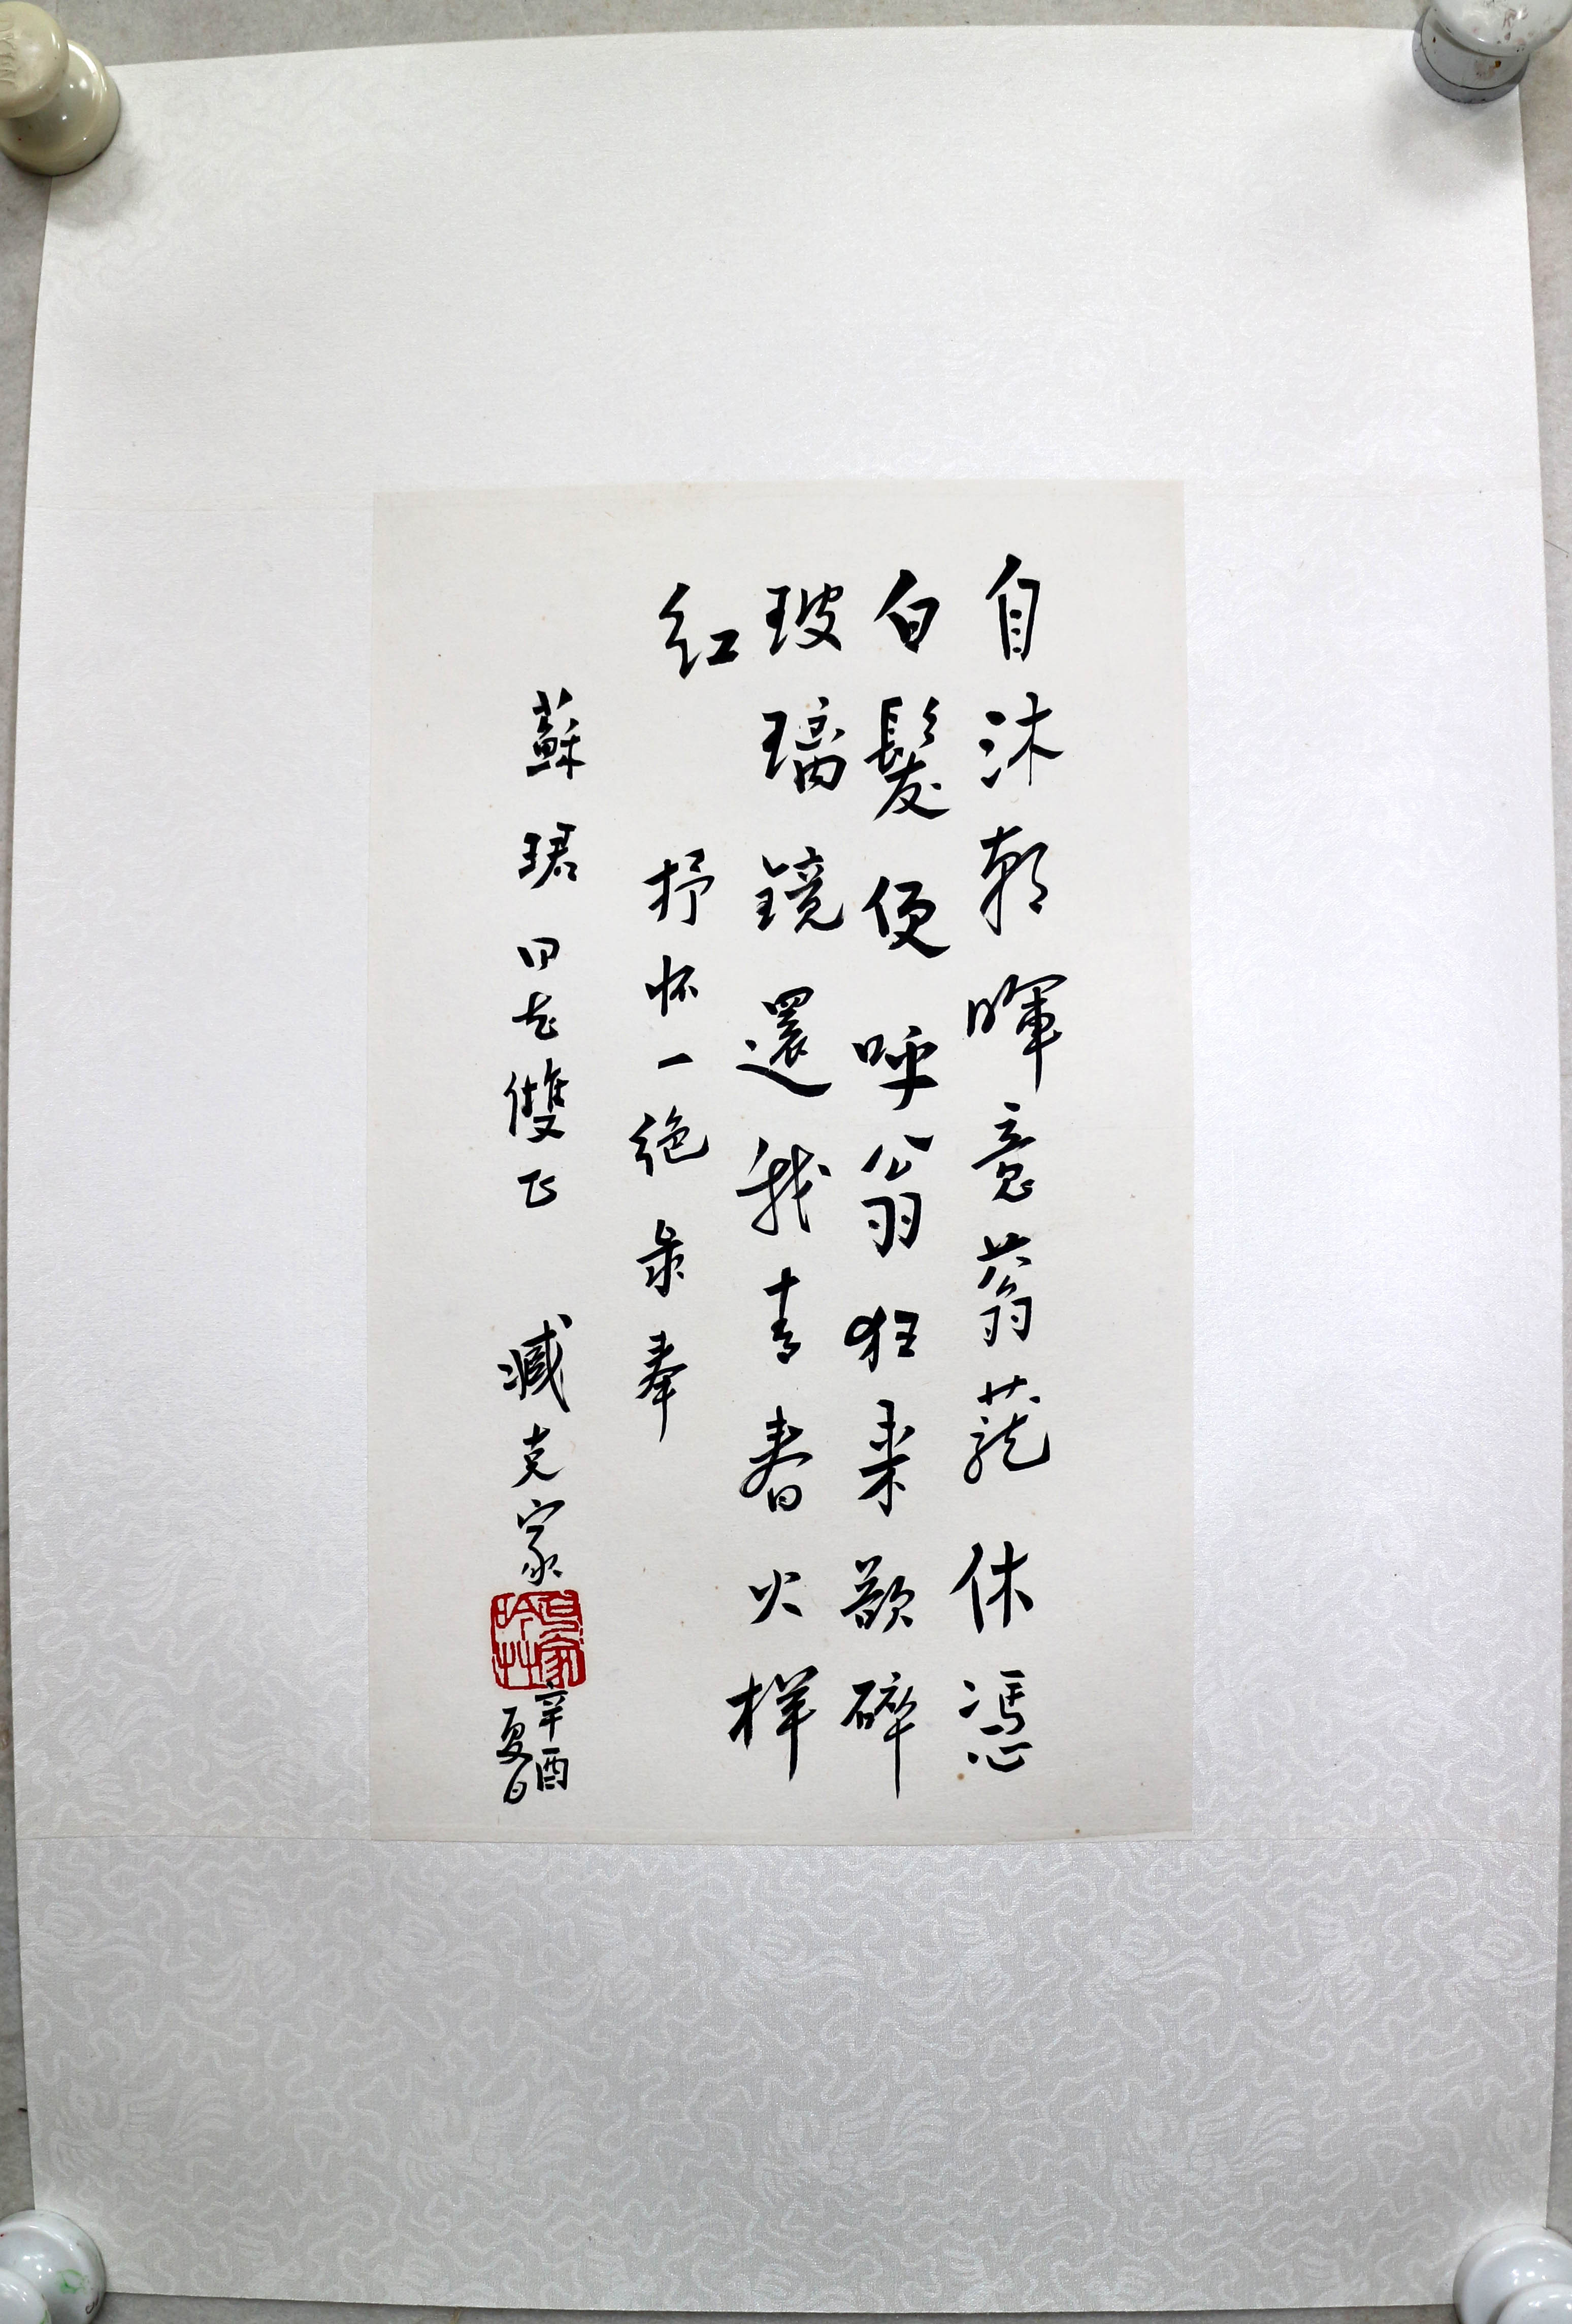 自沐朝暉意蓊蘢休憑
白髮便呼翁狂来欲碎
玻璃鏡還我青春火樣
紅
抒怀一绝录奉
蘇珺同志雙正
臧克家
辛酉
夏日